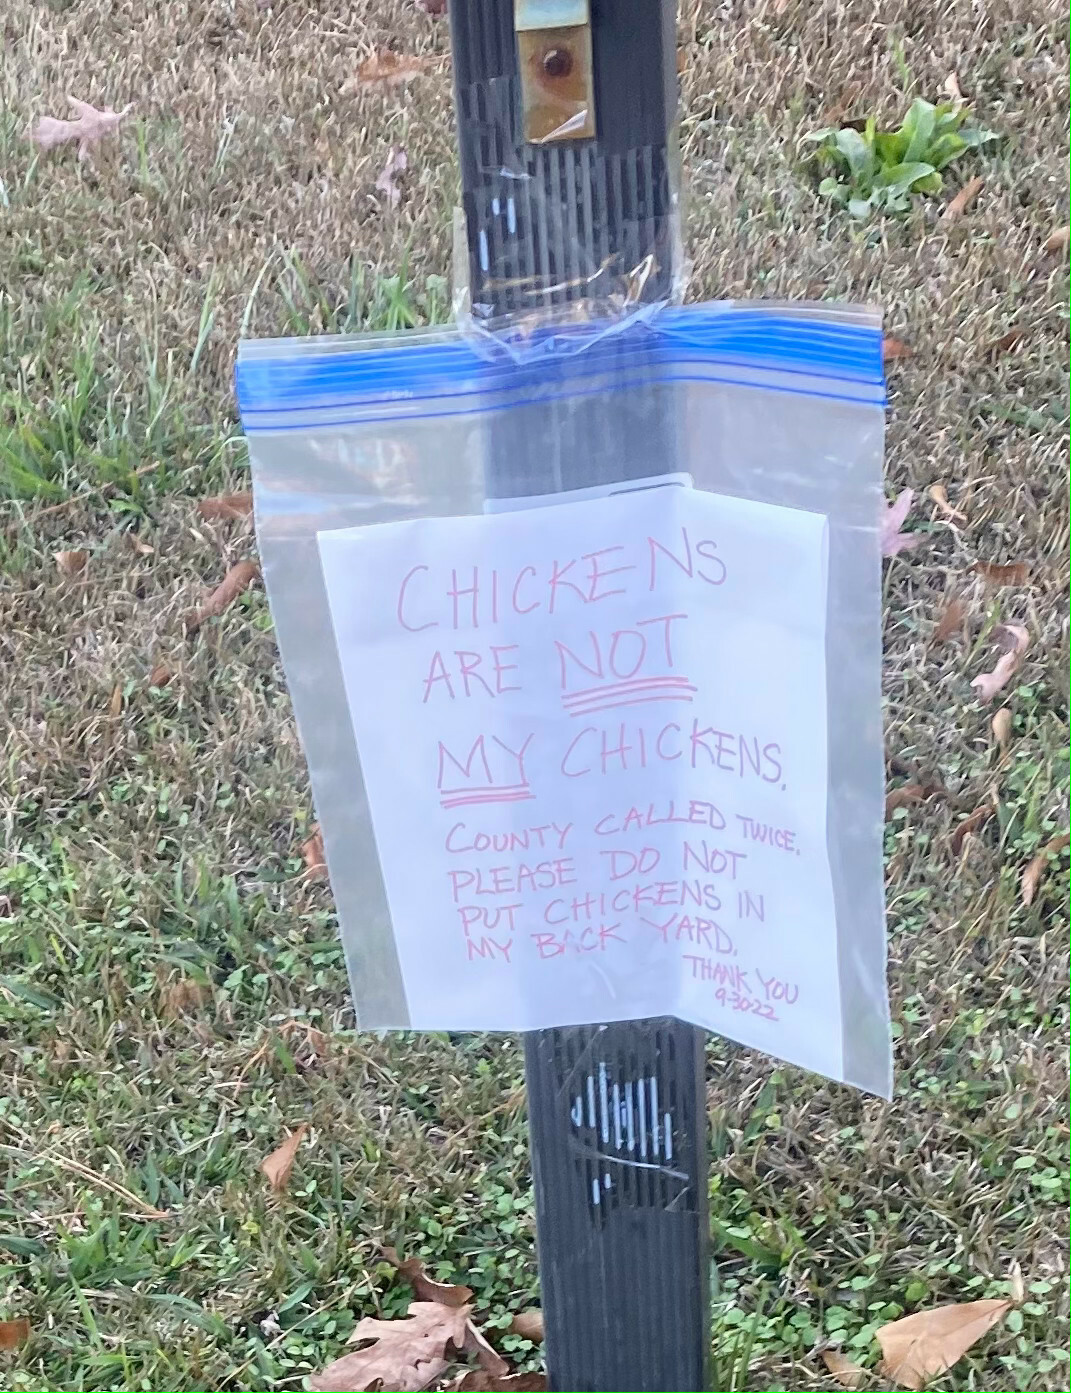 CHICKENS
ARE NOT
MY CHICKENS.
COUNTY CALLED TWICE.
PLEASE DO NOT
PUT CHICKENS IN
MY BACK YARD.
THANK YOU
9-30-22